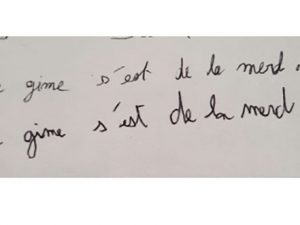 gime s'est de la merd.
gime s'est de la merd